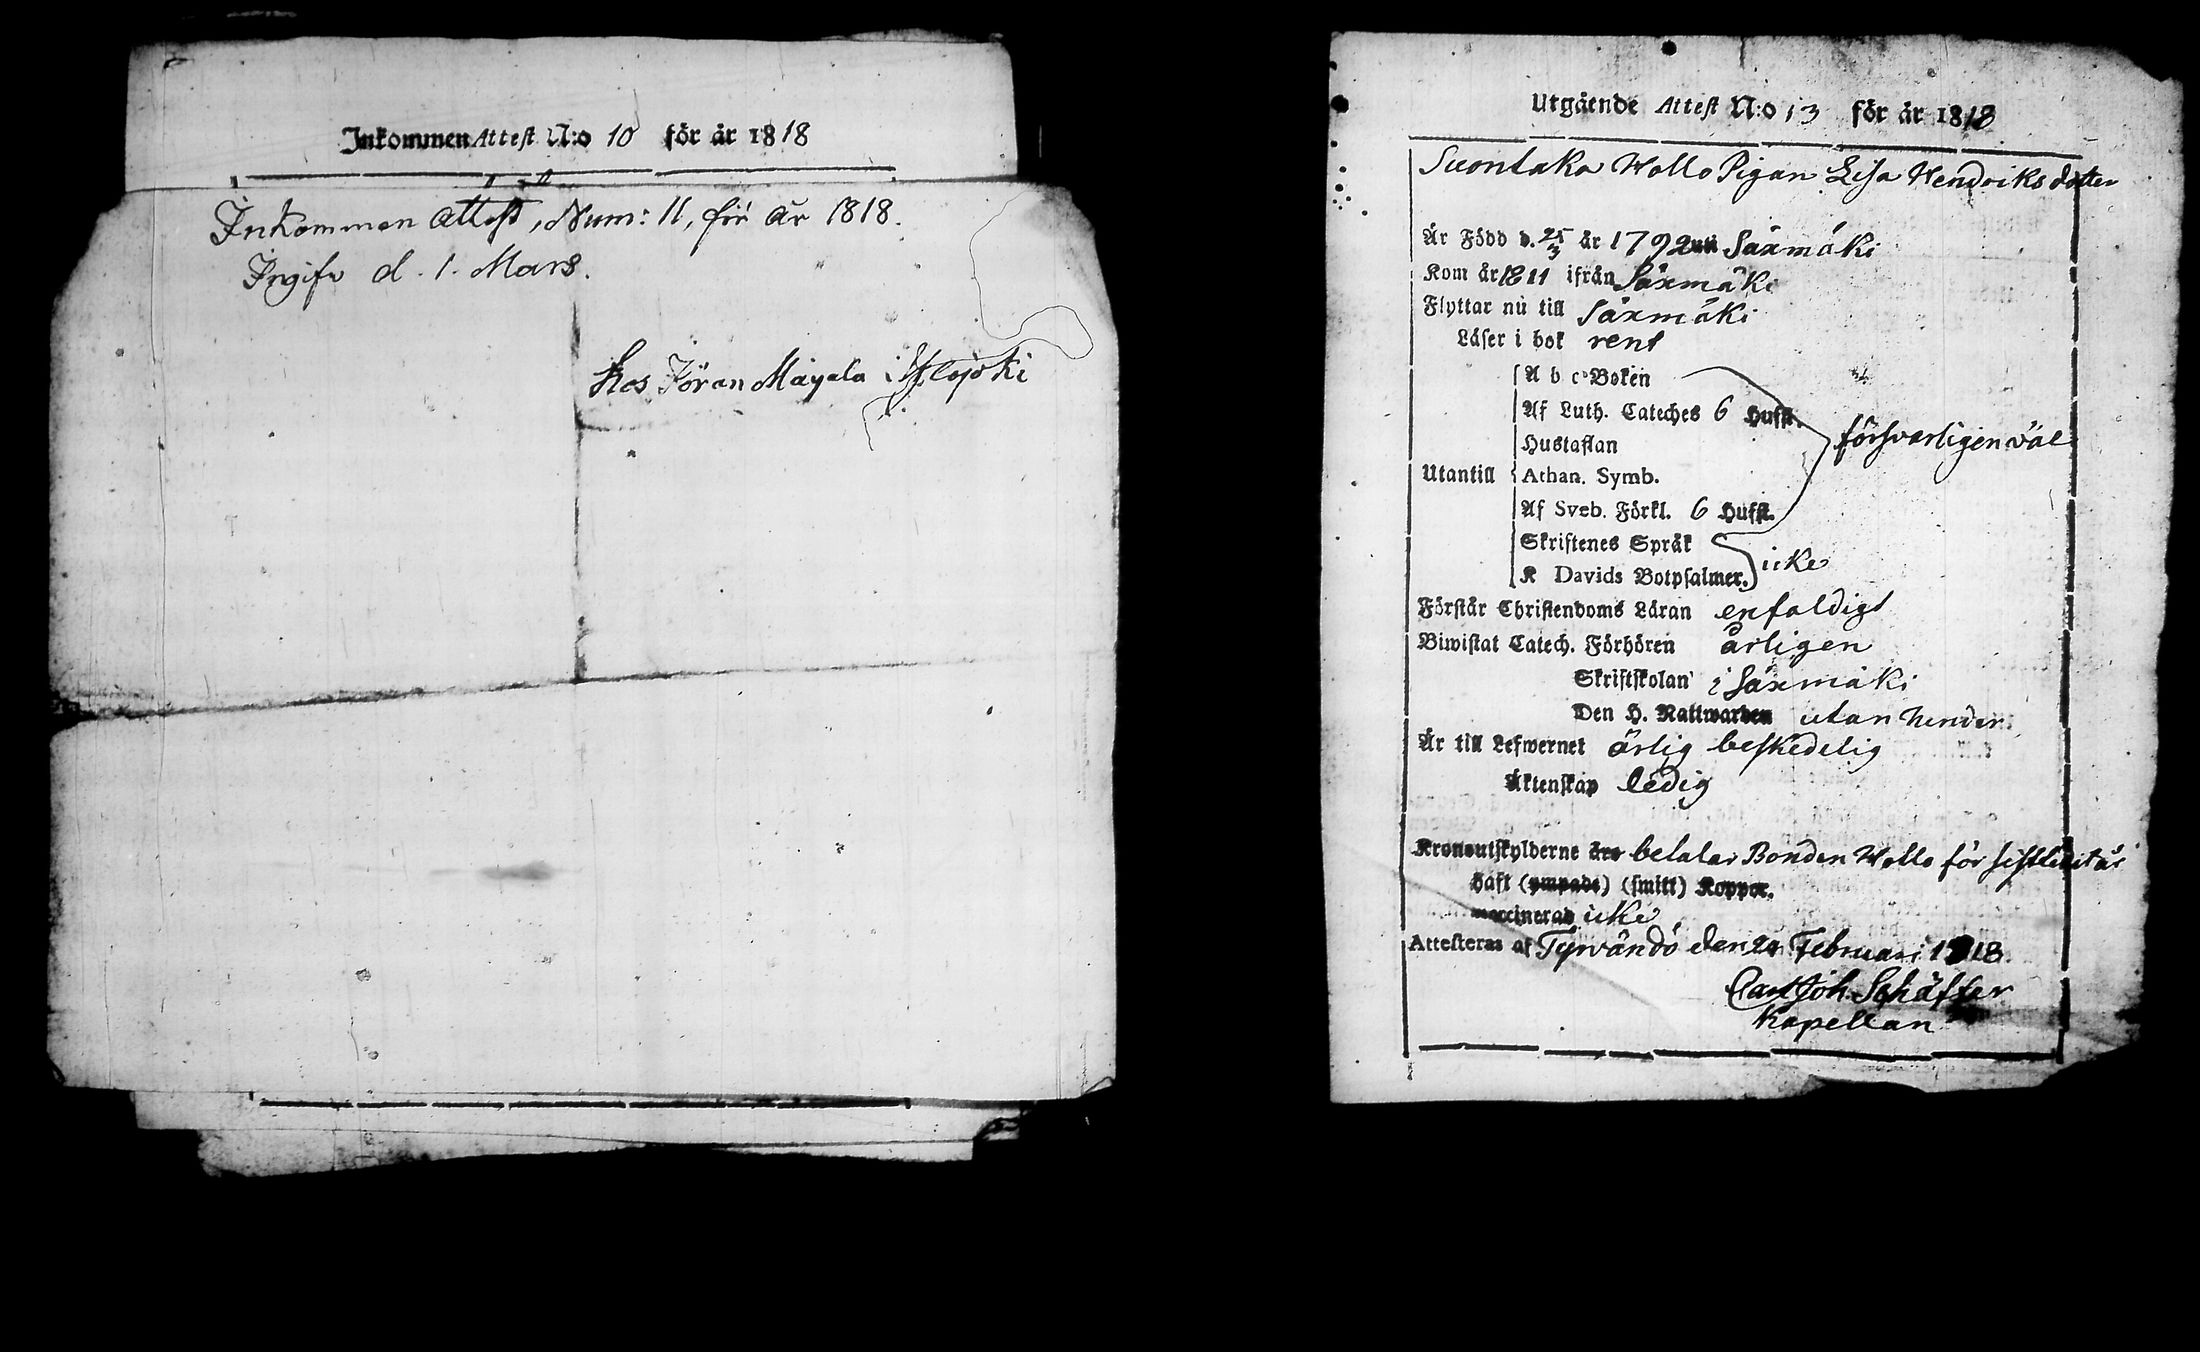 Inkommen Attest N:o 10 för år 1818
Inkommen Attest, Num: 11, för År 1818.
Ingifv d. 1. Mars.
hos Jöran Mäyälä i
Utgående Attest N:o 13 för år 1818
Suontaka Wallo Pigan Lisa Hendriks dotter
Är Född d. 25/3 år 1792 uti Säxmäki
Kom år 1811 ifrån Säxmäki
Flyttar nu till Säxmäki
Läser i bok rent
A b c Boken
Af Luth. Cateches 6 Hufst.
Hustaflan
försvarligen väl
Utantill Athan. Symb.
Af Sveb. Förkl. 6 Hufst.
Skriftenes Språk
icke
K Davids Botpsalmer.
Förstår Christendoms Läran enfaldigt
Biwistat Catech. Förhören årligen
Skriftskolan i Säxmäki
Den H. Nattwarden utan hinder
Är till Lefwernet ärlig beskedelig
Äktenskap ledig
Kronoutskylderne äro betalar Bonden Wallo för
haft (ympade) (smitt) Koppor.
waccinerad icke
Attesteras af Tyrvändö den 20 Februari 1818.
Carl Joh. Schäffer
Kapellan